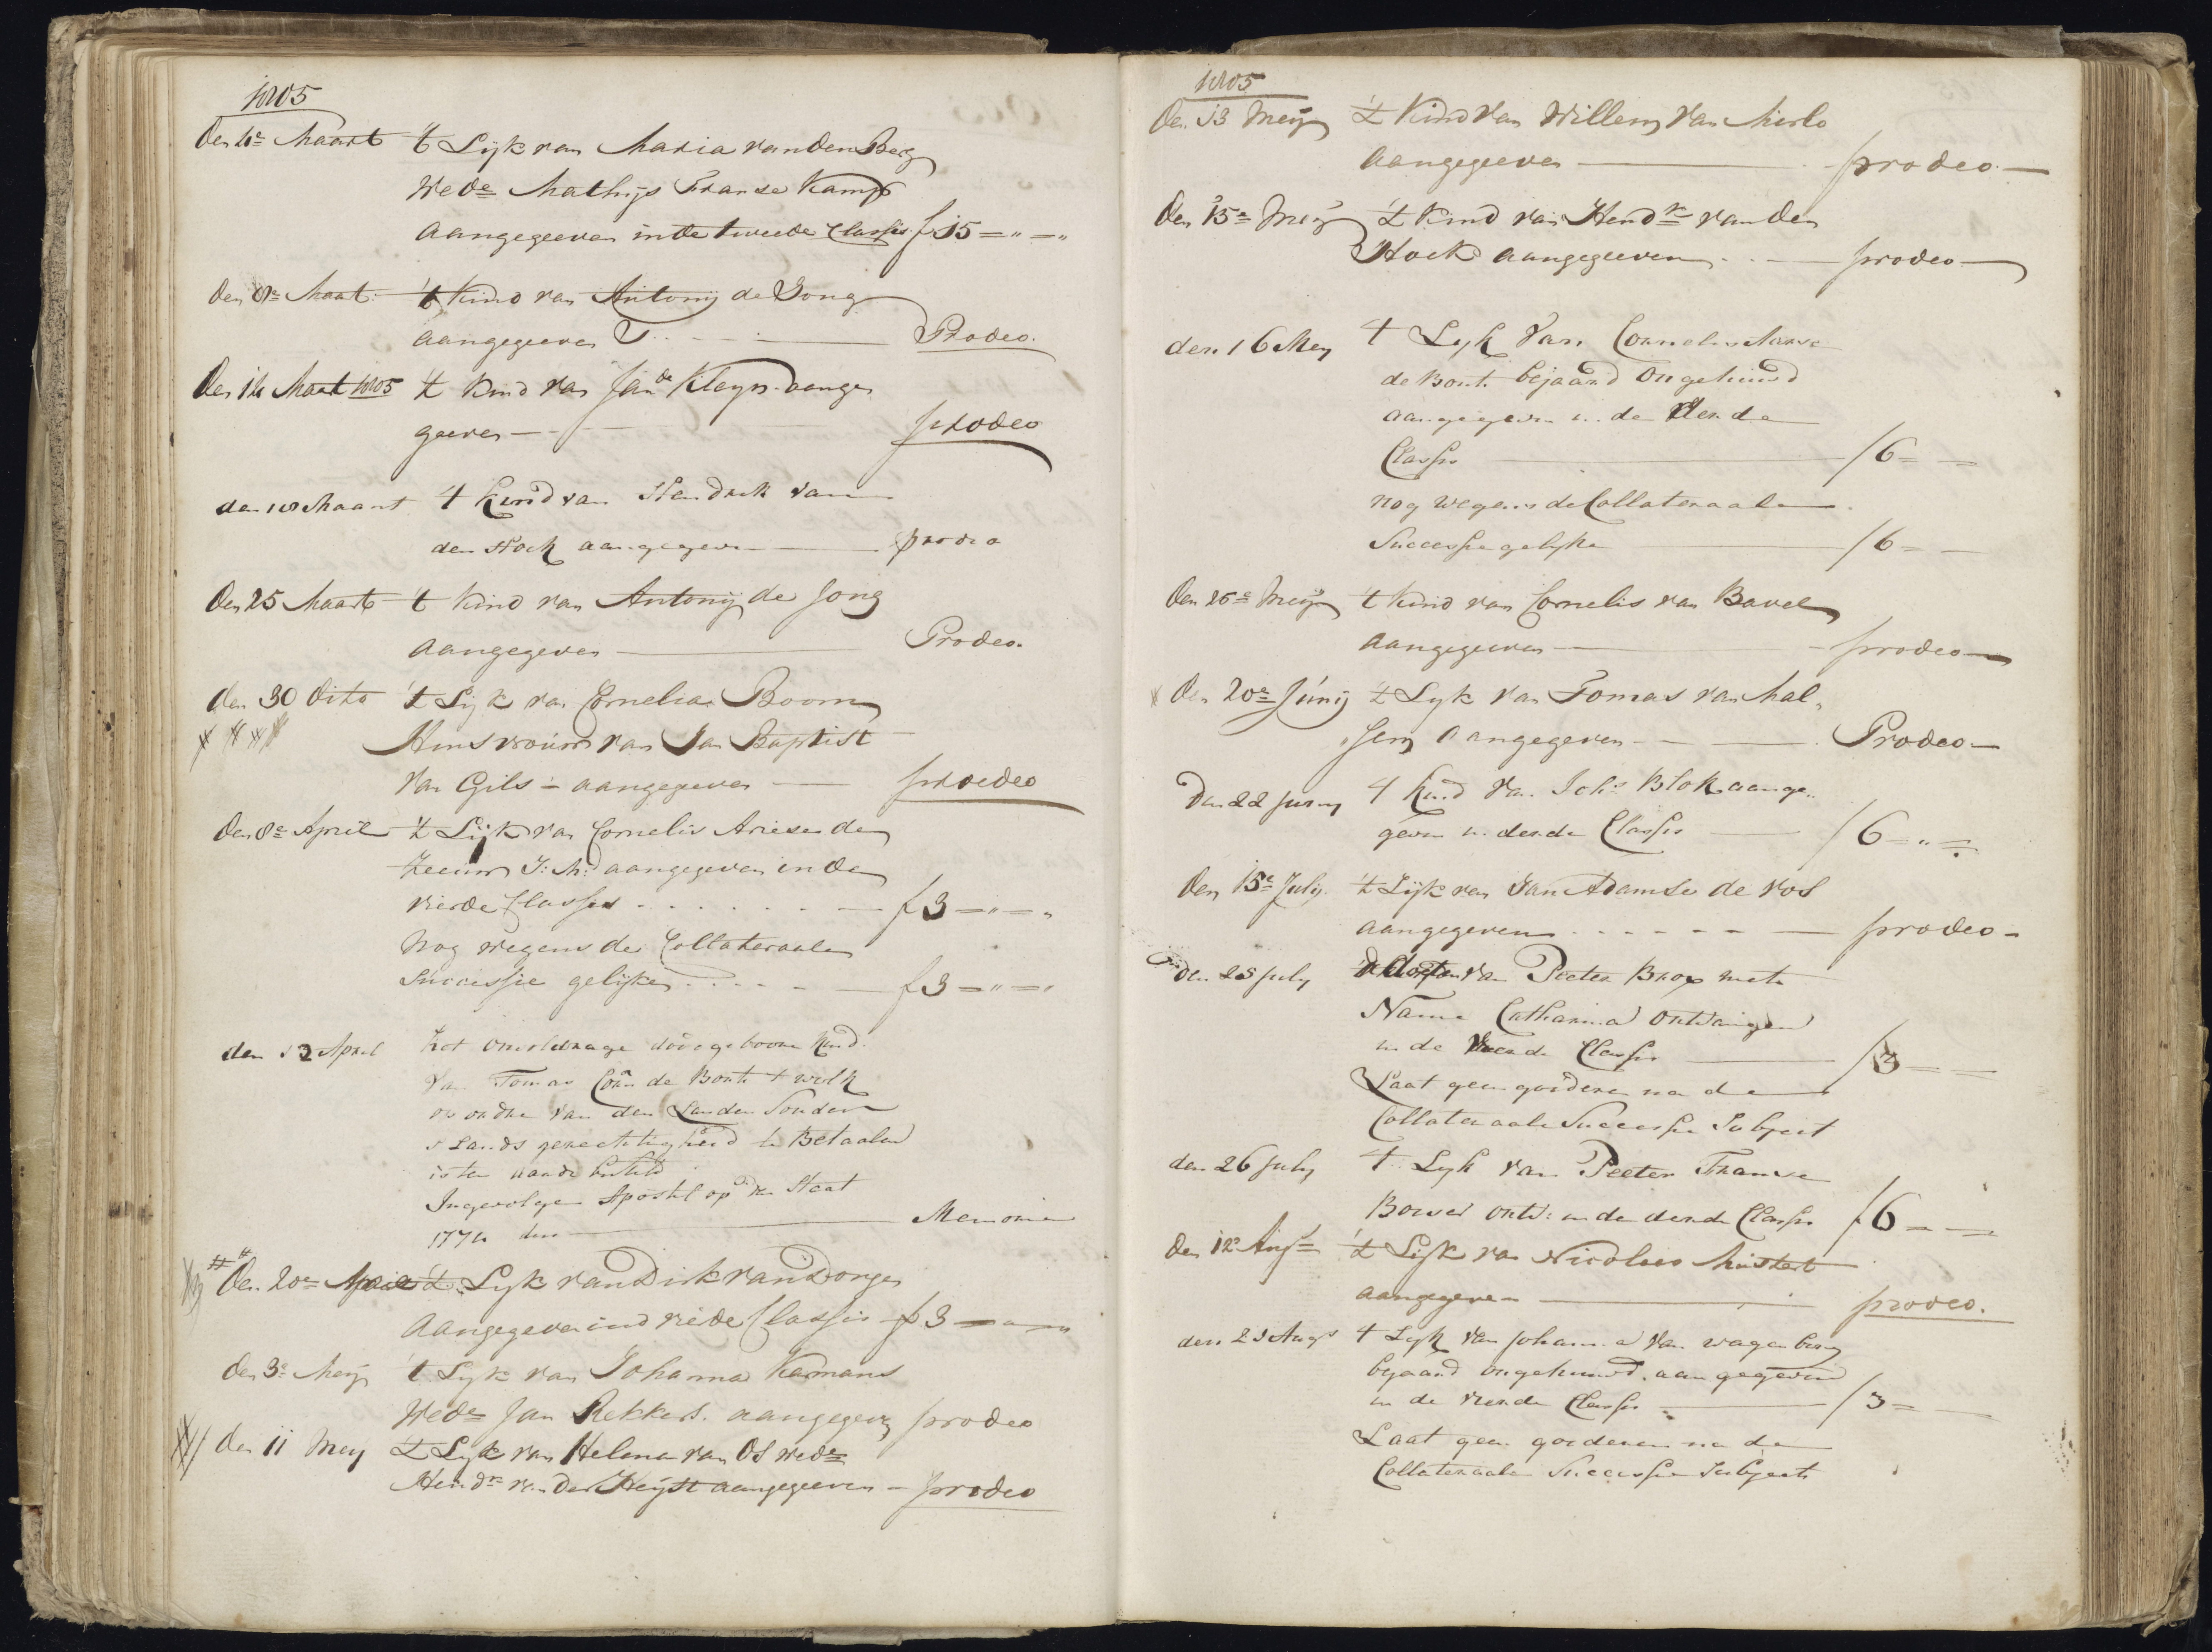 1805
Den 4e Maart 't Lijk van Maria van den Berg
Wede Mathijs Franse Kamp
aangegeeven in de tweede Classis f 15 = " = "
den 8e Maart 't Kind van Antonij de Jong
aangegeeven Prodeo.
Den 14 Maart 1805 't Kind van Jan de Kleyn aange
geeven prodeo
den 18 Maart 't Kind van Hendrik van
den Hoek aangegeven prodeo
Den 25 Maart 't Kind van Antonij de Jong
aangegeven Prodeo.
den 30 dito 't Lijk van Cornelia Boom
Huisvrouw van Jan Baptist
van Gils - aangegeven proedeo
Den 8e April 't Lijk van Cornelis Ariese de
Zeeuw J: M: aangegeven in de
vierde Classis f 3 = " = "
Nog wegens de Collateraale
Successie gelijke f 3 = " = "
den 12 April het onvoldrage dood geboore Kind
van Tomas Corn de Bont 't welk
op ordre van den Landen Sonder
s Lands gerechtigheid te Betaalen
is ter aarde besteld
Ingevolge Apostil op den Staat
1774 Memorie
Den 20e April 't Lyk van Dirk van Dongen
aangegeven in d vierde Classis f 3 = " = "
den 3e Meij 't Lijk van Johanna Kamans
Wede Jan Rekkers. aangegeven prodeo
den 11 Mey 't Lyk van Helena van Os wede
Hendr van der Heijst aangegeeven - prodeo
1805
Den 13 Meij 't Kind van Willem van Mierlo
aangegeeven prodeo.
Den 15e Meij 't Kind van Hendk van den
Hoek aangegeeven prodeo
den 16 Mey 't Lyk van Cornelis Janse
de Bont bejaard Ongehuwd
aangegeven in de derde
Classis f 6 =
nog wegens de Collateraale
Successie gelyke f 6 =
Den 26e Meij 't Kind van Cornelis van Bavel
aangegeeven prodeo
Den 20e Junij 't Lyk van Tomas van Mal,
sen aangegeven Prodeo
Den 22 Juny 't Kind van Johs Blok aange..
geven in derde Classis f 6 = " =
Den 15e July 't Lijk van Jan Adamse de Vos
aangegeven prodeo -
den 25 July van Peeter Brox met
Name Catharina ontvangen
in de vierde Classis f 3 =
Laat geen goederen na de
Collateraale Successie Subject
den 26 July 't Lyk van Peeter Franse
Bouwer ontv: in de derde Classis f 6 =
Den 12e Augs 't Lijk van Nicolaas Mustert
aangegeven prodeo.
den 23 Augs 't Lyk van Johanna van wagenberg
bejaard ongehuwd aangegeven
in de vierde Classis f 3 =
Laat geen goederen na de
Collateraale Successie Subject